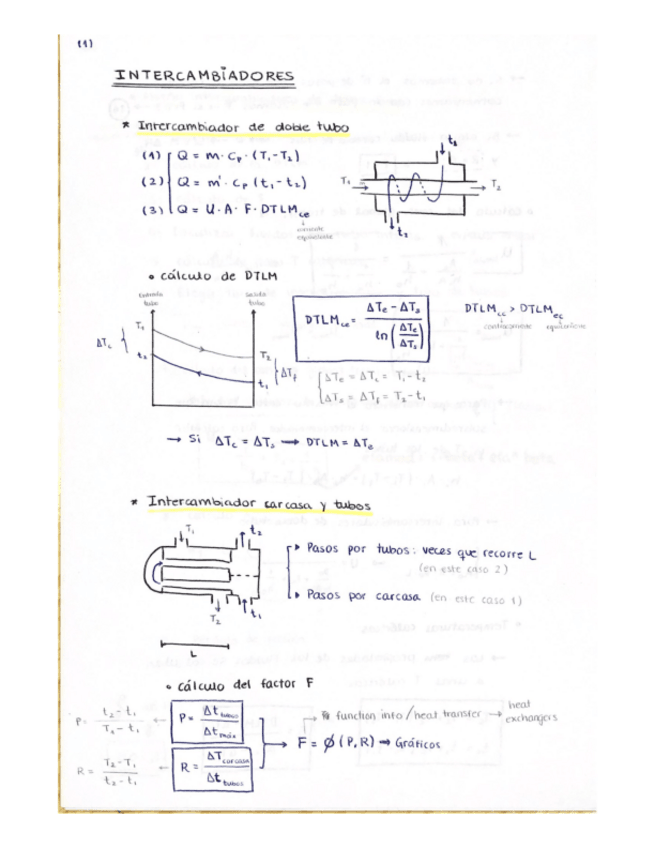 (1)
INTERCAMBIADORES
* Intercambiador de doble tubo
(1) Q = m · Cp · (T₁-T₂)
(2) Q = m' · Cp (t₁-t₂)
(3) Q = U · A · F · DTLM ce
t₂
T₁
T₂
t₂
• cálculo de DTLM
entrada tubo
salida tubo
T₁
t₂
ΔTc
T₂
t₁
ΔTf
DTLM ce = ΔTe - ΔTs / ln(ΔTe/ΔTs)
DTLM cc > DTLM ec
contracorriente
ΔTe = ΔTc = T₁-t₂
ΔTs = ΔTf = T₂-t₁
→ Si ΔTc = ΔTs → DTLM = ΔTs
* Intercambiador carcasa y tubos
T₁
t₂
T₂
t₁
L
▸ Pasos por tubos: veces que recorre L
(en este caso 2)
▸ Pasos por carcasa (en este caso 1)
• cálculo del factor F
P = t₂-t₁ / T₁-t₁ ← P = Δt tubos / Δt máx
R = T₂-T₁ / t₂-t₁ ← R = ΔT carcasa / Δt tubos
→ function into / heat transfer → heat exchangers
F = ϕ (P, R) ⇒ Gráficos